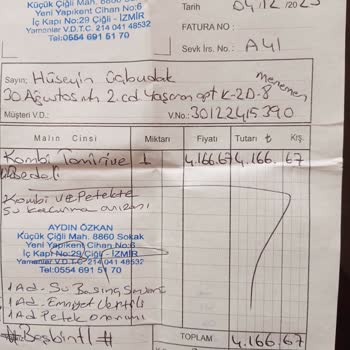 Küçük Çiğli Mah. 8860 Sokak
Yeni Yapıkent Cihan No:6
İç Kapı No:29 Çiğli - İZMİR
Yamanlar V.D.T.C. 214 041 48532
Tel:0554 691 51 70
Tarih 04/12/2023
FATURA NO :
Sevk İrs. No.: A41
Sayın; Hüseyin
30 Ağustos mh 2.cd Yaşam apt K-2D-8 menemen
Müşteri V.D.: V.No: 30122415390
Malın Cinsi Miktarı Fiyatı Tutarı ₺ Krş.
Kombi Tamiri ve 1 4.166.67 4.166,67
Bedeli
Kombi ve Petekte
Su kaçırma arızası
AYDIN ÖZKAN
Küçük Çiğli Mah. 8860 Sokak
Yeni Yapıkent Cihan No:6
İç Kapı No:29 Çiğli - İZMİR
Yamanlar V.D.T.C. 214 041 48532
Tel:0554 691 51 70
1 Ad - Su Basınç
1 Ad. Emniyet Ventili
1 Ad Petek onarımı
#Beşbin tl # TOPLAM 4.166,67